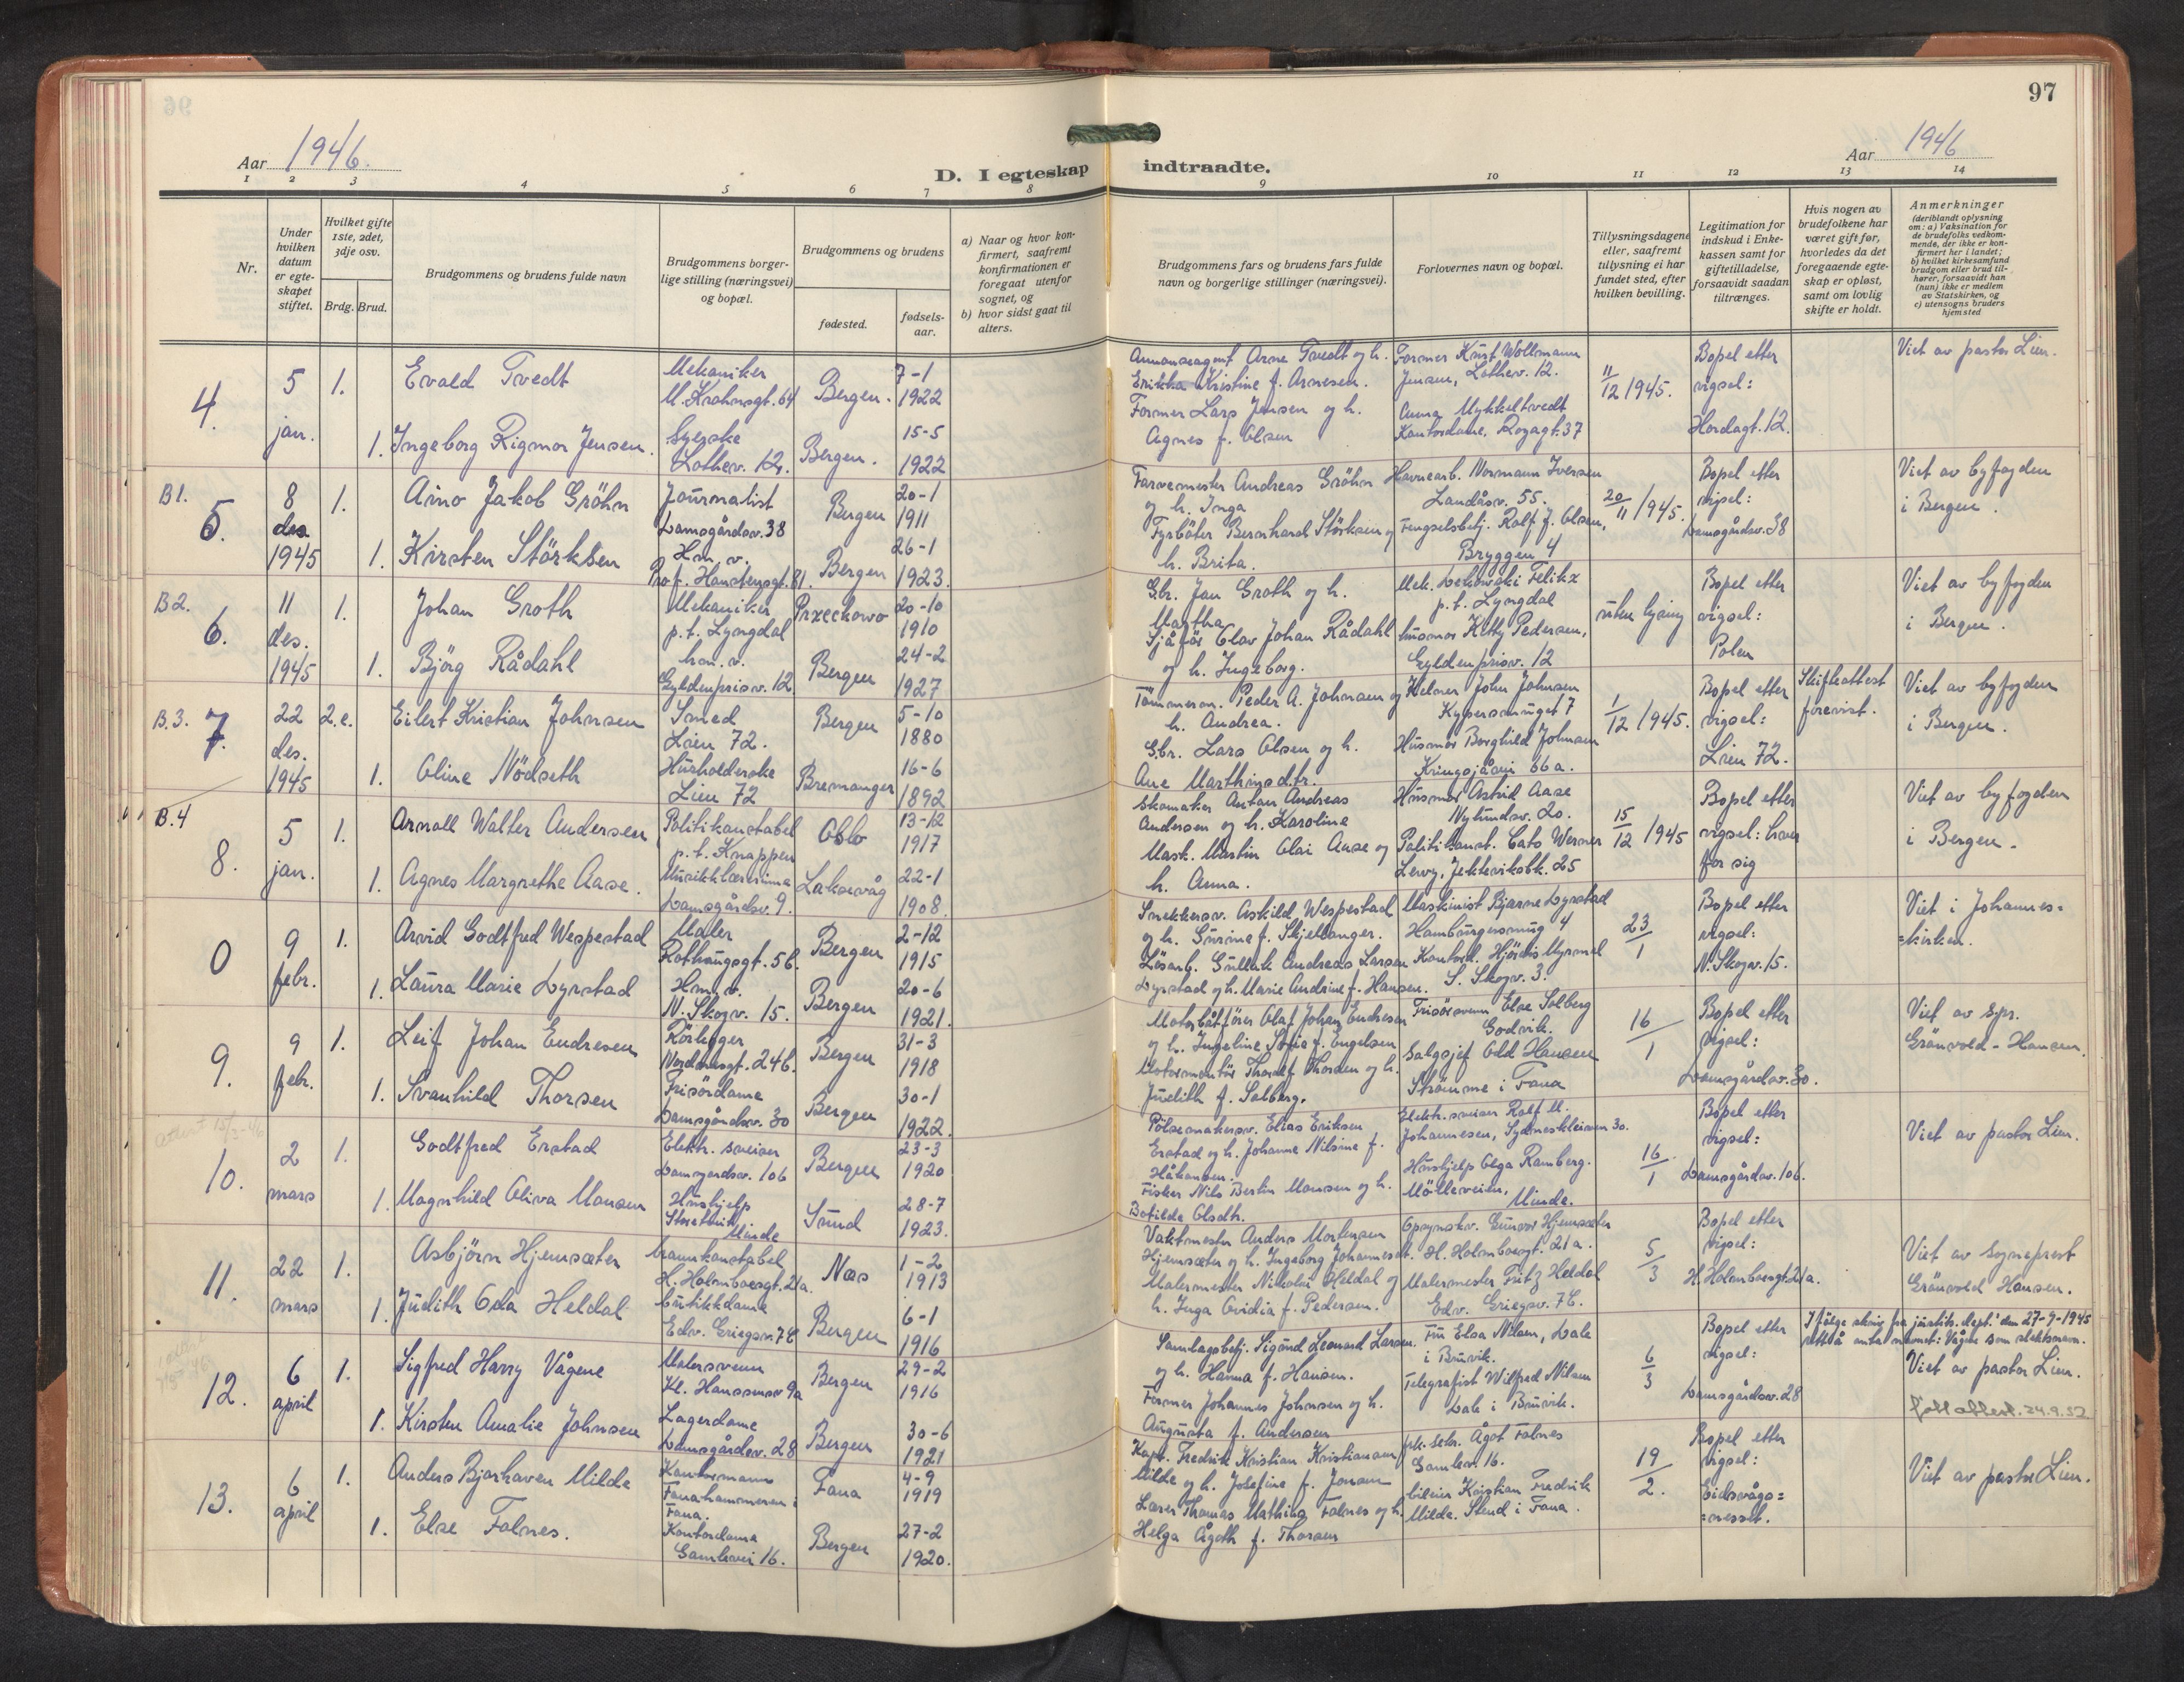 97
Aar 1946.
D. I egteskap indtraadte.
Aar 1946
1 2 3 4 5 6 7 8 9 10 11 12 13 14
Nr.
Under hvilken datum er egteskapet stiftet.
Hvilket gifte 1ste, 2det, 3dje osv.
Brdg. Brud.
Brudgommens og brudens fulde navn
Brudgommens borgerlige stilling (næringsvei) og bopæl.
Brudgommens og brudens
fødested.
fødselsaar.
a) Naar og hvor konfirmert, saafremt konfirmationen er foregaat utenfor sognet, og
b) hvor sidst gaat til alters.
Brudgommens fars og brudens fars fulde navn og borgerlige stillinger (næringsvei).
Forlovernes navn og bopæl.
Tillysningsdagene eller, saafremt tillysning ei har fundet sted, efter hvilken bevilling.
Legitimation for indskud i Enkekassen samt for giftetilladelse, forsaavidt saadan tiltrænges.
Hvis nogen av brudefolkene har været gift før, hvorledes da det foregaaende egteskap er opløst, samt om lovlig skifte er holdt.
Anmerkninger
(deriblandt oplysning om: a) Vaksination for de brudefolks vedkommende, der ikke er konfirmert her i landet; b) hvilket kirkesamfund brudgom eller brud tilhører, forsaavidt han (hun) ikke er medlem av Statskirken, og c) utensogns bruders hjemsted
4. 5 jan. 1. Evald Tvedt
Mekaniker M. Krohnsgt. 64 Bergen. 7-1 1922
1. Ingeborg Rigmor Jensen.
Syerske Lothev. 12. Bergen. 15-5 1922
Annonseagent Arne Tvedt og h. Erikka Kristine f. Arnesen.
Former Lars Jensen og h. Agnes f. Olsen
Former Knut Wollmann Jensen, Lothev. 12.
Anna Mykkeltvedt Kontordame, Rogagt. 37
11/12 1945.
Bopel etter vigsel: Hordagt. 12.
Viet av pastor Lien.
B1. 5. 8 des 1945 1. Arno Jakob Gröhn
Journalist Damsgårdsv. 38 Bergen 20-1 1911
1. Kirsten Störksen
Hm. v. Prof. Hansteensgt. 81. Bergen 26-1 1923.
Farvemester Andreas Gröhn og h. Inga
Fyrböter Bernhard Störksen og h. Brita.
Havnearb. Normann Iversen Landåsv. 55.
Fengselsbetj. Rolf J. Olsen, Bryggen 4
20/11 1945.
Bopel etter vigsel: Damsgårdsv. 38
Viet av byfogden i Bergen.
B2. 6. 11 des. 1945 1. Johan Groth
Mekaniker p.t. Lyngdal Przechowo 20-10 1910
1. Björg Rådahl
hm. v. Gyldenprisv. 12 Bergen 24-2 1927
Gbr. Jan Groth og h. Martha
Sjåför Olav Johan Rådahl og h. Ingeborg.
Mek. Dekowski Felikz p.t. Lyngdal
husmor Ketty Pedersen, Gyldenprisv. 12
uten lysing
Bopel etter vigsel: Polen
Viet av byfogden i Bergen.
B.3. 7. 22 des. 1945 2.e. Eilert Kristian Johnsen
Smed Lien 72. Bergen 5-10 1880
1. Oline Nödseth
Husholderske Lien 72 Bremanger 16-6 1892
Tömmerm. Peder A. Johnsen og h. Andrea.
Gbr. Lars Olsen og h. Ane Marthinsdtr.
Kelner John Johnsen Kypersmuget 7
Husmor Borghild Johnsen Kringsjåvei 66a.
1/12 1945.
Bopel etter vigsel: Lien 72.
Skifteattest forevist.
Viet av byfogden i Bergen.
B.4 8. 5 jan. 1. Arnall Walter Andersen
Politikonstabel p.t. Knappen Oslo 13-12 1917
1. Agnes Margrethe Aase.
Musikklærerinne Damsgårdsv. 9. Laksevåg 22-1 1908.
Skomaker Anton Andreas Andersen og h. Karoline
Mask. Martin Olai Aase og h. Anna.
Husmor Astrid Aase Nylundsv. 20.
Politikonst. Cato Werner Lervy, Jekteviksbk. 25
15/12 1945
Bopel etter vigsel: hver for sig
Viet av byfogden i Bergen.
0 9 febr. 1. Arvid Godtfred Wespestad
Maler Rothaugsgt. 5b. Bergen 2-12 1915
1. Laura Marie Dyrstad
Hm. v. N. Skogv. 15. Bergen 20-6 1921.
Snekkersv. Askild Wespestad og h. Gurine f. Skjellanger.
Lösarb. Gullik Andreas Larsen Dyrstad og h. Marie Andrine f. Hansen.
Maskinist Bjarne Dyrstad Hamburgersmug 4
Kontord. Hjördis Myrmel S. Skogv. 3.
23/1
Bopel etter vigsel: N. Skogv. 15.
Viet i Johannes= =kirken.
9. 9 febr. 1. Leif Johan Endresen
Rörlegger Nordnesgt. 24b. Bergen 31-3 1918
1. Svanhild Thorsen
Frisördame Damsgårdsv. 30 Bergen 30-1 1922.
Motorbåtförer Olaf Johan Endresen og h. Ingeline Sofie f. Engelsen
Motormontör Thoralf Thorsen og h. Judith f. Solberg.
Frisörsvenn Else Solberg Godvik.
Salgsjef Odd Hansen Strömme i Fana
16/1
Bopel etter vigsel: Damsgårdsv. 30.
Viet av spr. Grönvold-Hansen.
attest 15/3-46
10. 2 mars 1. Godtfred Erstad
Elektr. sveiser Damsgårdsv. 106 Bergen 23-3 1920
1. Magnhild Oliva Monsen
Hushjelp Storetveit Minde Sund 28-7 1923.
Pölsemakersv. Elias Eriksen Erstad og h. Johanne Nilsine f. Håkonsen.
Fisker Nils Bertin Monsen og h. Botilde Olsdtr.
Elektr. sveiser Rolf M. Johannesen, Sydneskleiven 30.
Hushjelp Olga Ramberg. Mölleveien, Minde.
16/1
Bopel etter vigsel: Damsgårdsv. 106.
Viet av pastor Lien.
11. 22 mars 1. Asbjörn Hjemsæter
brannkonstabel H. Holmboesgt. 21a. Næs 1-2 1913
1. Judith Oda Heldal
butikkdame Edv. Griegsv. 7b. Bergen 6-1 1916
Vaktmester Anders Mortensen Hjemsæter og h. Ingeborg Johannesdt.
Malermester Nikolai Heldal og h. Inga Ovidia f. Pedersen.
Opsynskv. Gunvor Hjemsæter H. Holmboesgt. 21a.
Malermester Fritz Heldal Edv. Griegsv. 7b.
5/3
Bopel etter vigsel: H. Holmboesgt. 21a.
Viet av sogneprest Grönvold Hansen.
12. 6 april 1. Sigfred Harry Vågene
Malersvenn Kl. Hanssensv 9a Bergen 29-2 1916
1. Kirsten Amalie Johnsen
Lagerdame Damsgårdsv. 28 Bergen 30-6 1921
Samlagsbetj. Sigund Leonard Larsen og h. Hanna f. Hansen.
Former Johannes Johnsen og h. Augusta f. Andersen
Fru Elsa Nilsen, Dale i Bruvik.
Telegrafist Wilfred Nilsen Dale i Bruvik.
6/3
Bopel etter vigsel: Damsgårdsv. 28
Ifölge skriv fra justits. dept. den 27-9-1945
Vågene som slektsnavn.
Viet av pastor Lien.
attest. 24.9.52
13. 6 april 1. Anders Bjarhaven Milde
Kontormann Fanahammeren i Fana. Fana 4-9 1919
1. Else Falnes.
Kontordame Gamlevei 16. Bergen 27-2 1920.
Kapt. Fredrik Kristian Kristiansen Milde og h. Josefine f. Jonsen
Lærer Thomas Mathias Falnes og h. Helga Ågoth f. Thorsen
Ågot Falnes Gamlev. 16.
Kristian Fredrik Milde. Stend i Fana.
19/2.
Bopel etter vigsel: Eidsvågs= =nesset.
Viet av pastor Lien.